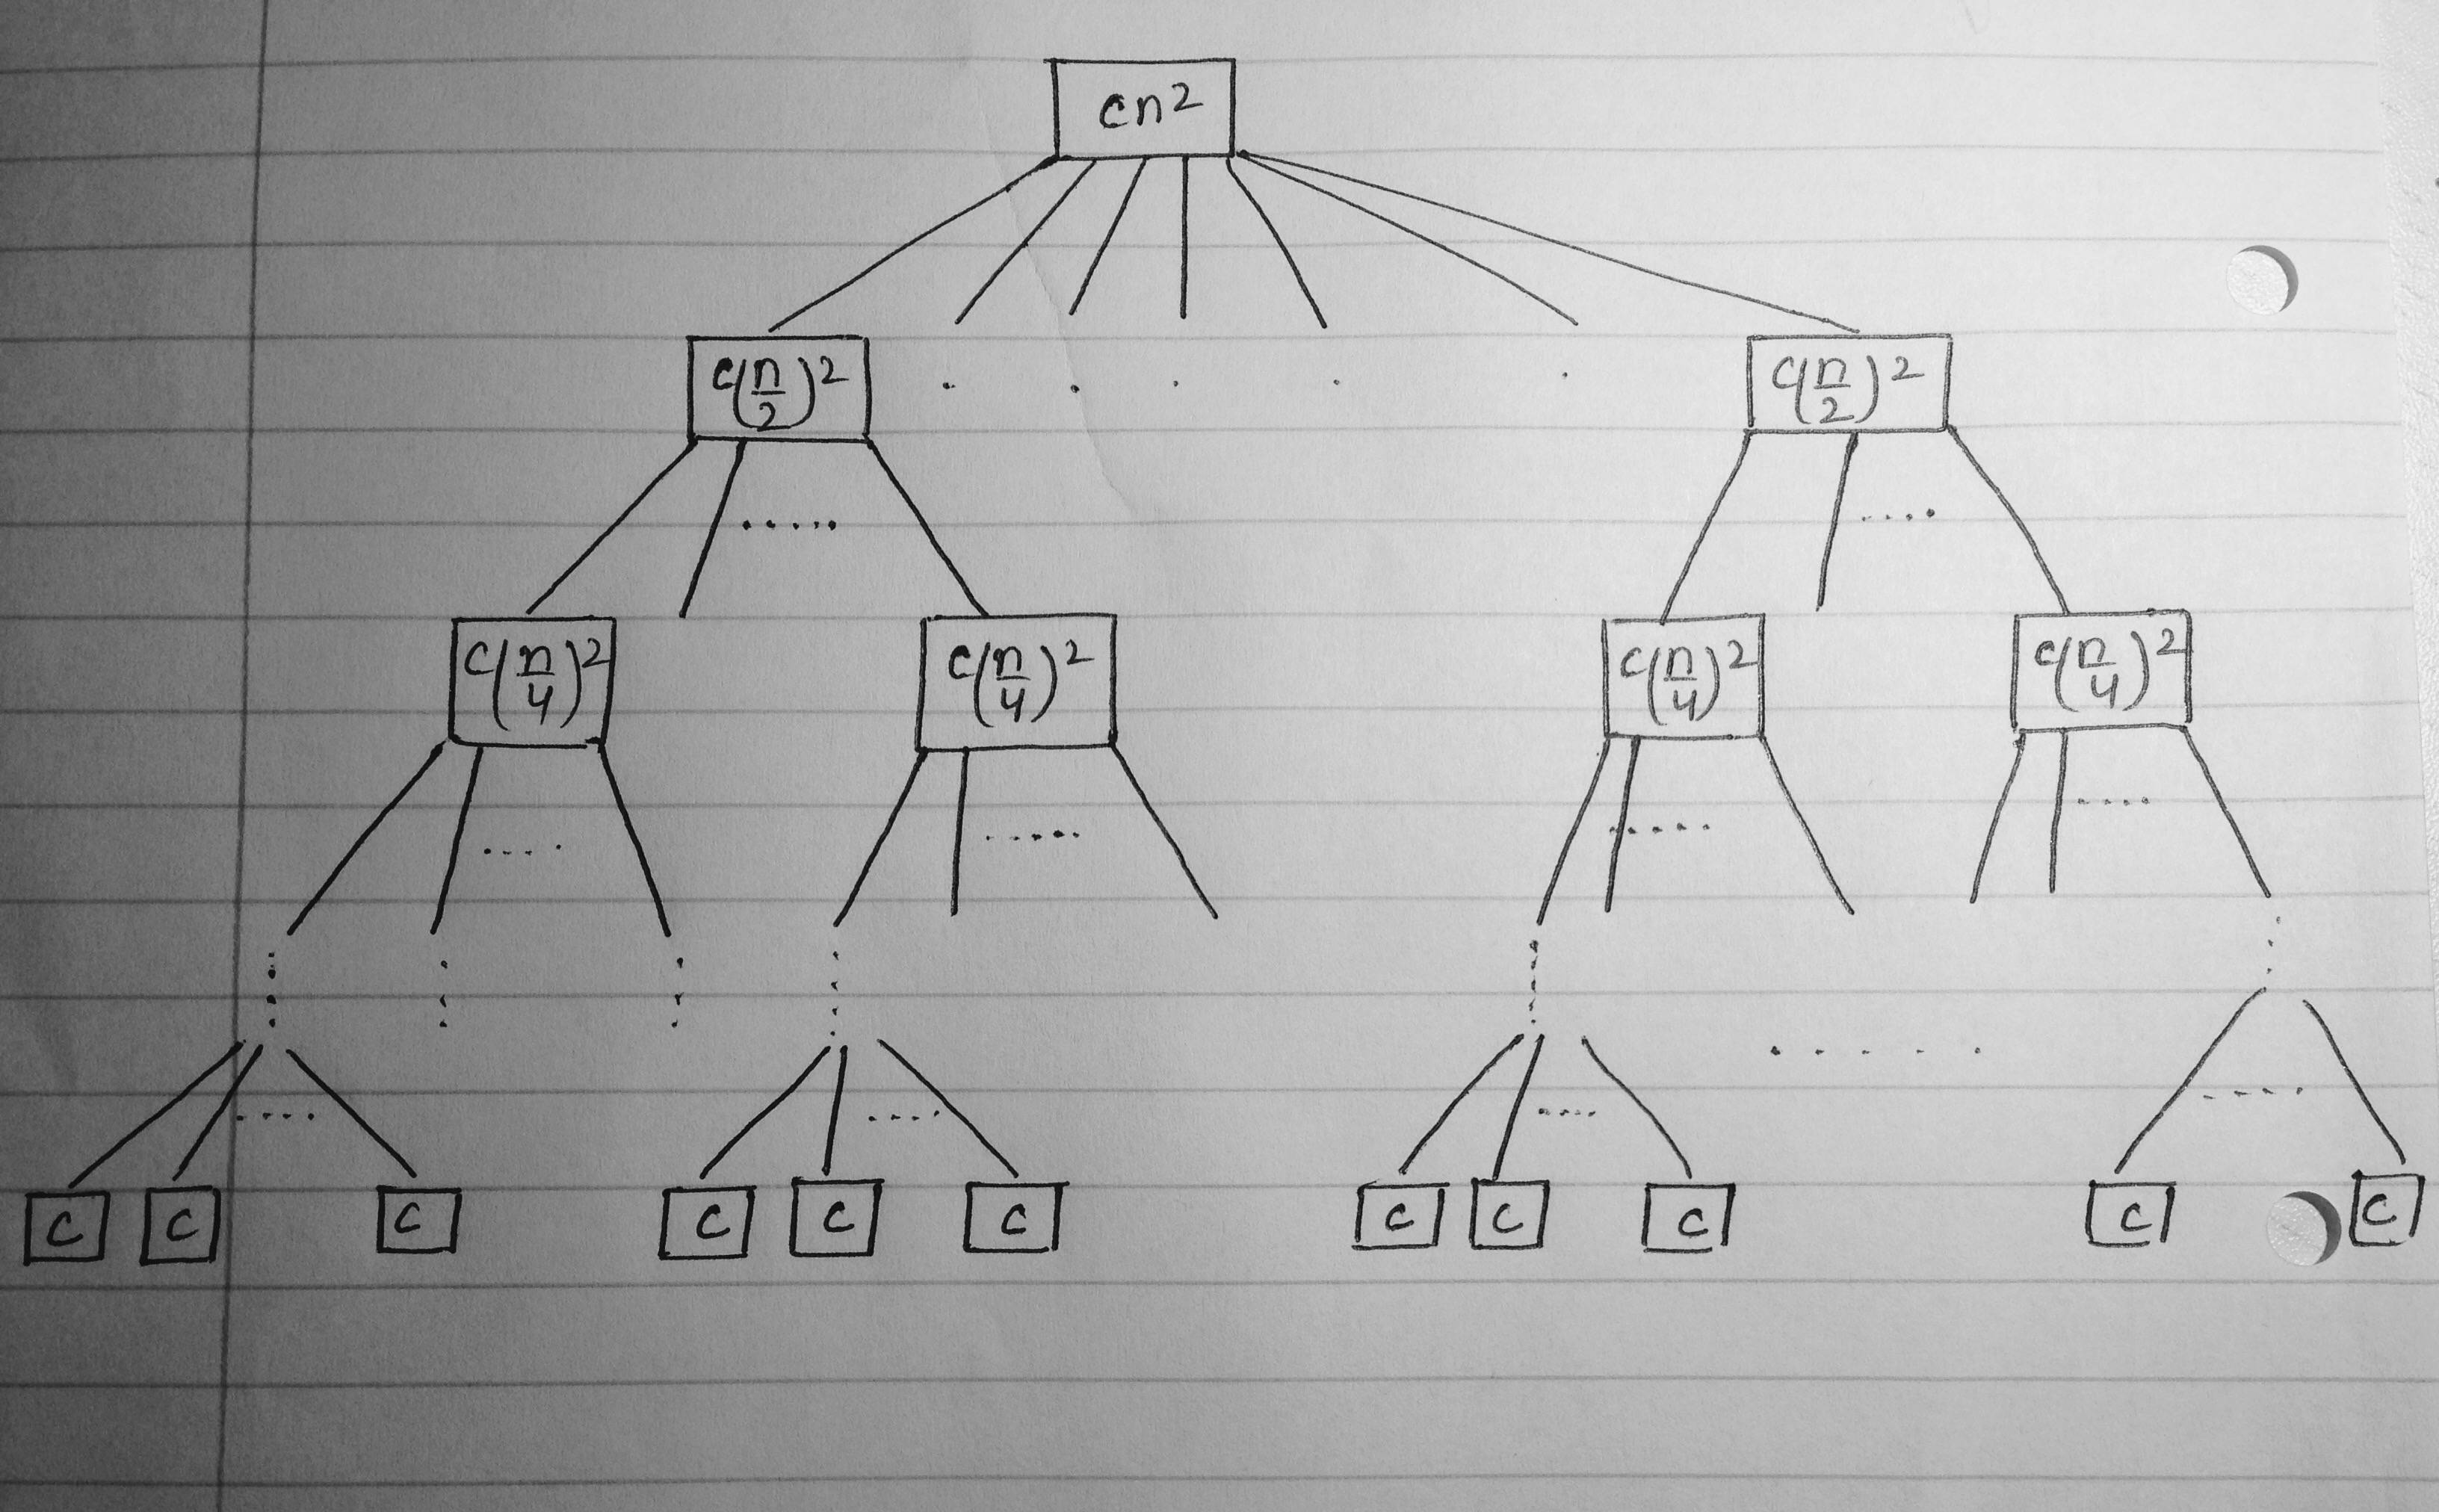 cn²
c(n/2)² . . . . . c(n/2)²
..... ....
c(n/4)² c(n/4)² c(n/4)² c(n/4)²
.... ..... ..... ....
.... .... .... .....
c c c c c c c c c c c